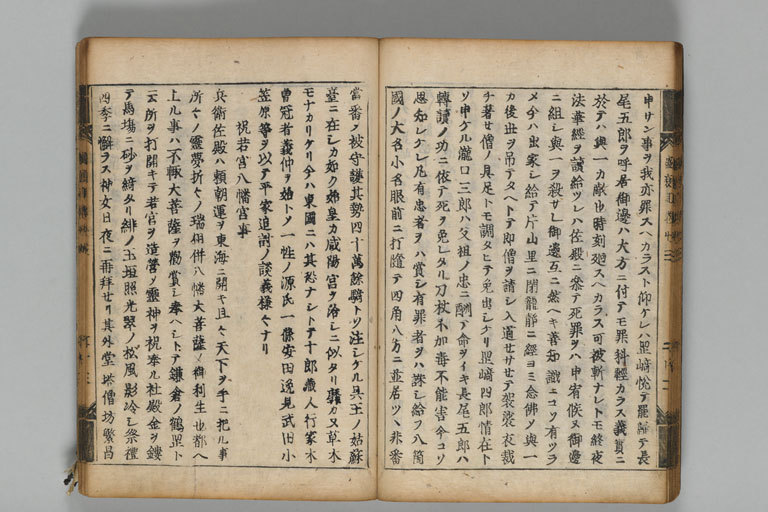 申サン事ヲ我亦罪スヘカラスト仰ケレハ岡崎悦テ罷歸テ長
尾五郎ヲ呼居御邊ハ大方ニ付テモ罪科輕カラス義實ニ
於テハ與一カ敵也時刻廻スヘカラス可被斬ナレトモ終夜
法華經ヲ讀給ツレハ佐殿ニ参テ死罪ヲハ申宥候ヌ御邊
ニ組シ與一ヲ殺セシ御邊互ニ然ヘキ善知識ニコソ有ツラ
メ今ハ出家シ給テ片山里ニ閉籠靜ニ經ヨミ念佛メ與一
カ後世ヲ吊テタヘトテ即僧ヲ請シ入道セサセテ袈裟衣裁
チ著せ僧ノ具足トモ調タヒテ免出シケリ岡崎四郎情在ト
ソ申ケル瀧口三郎ハ父祖ノ忠ニ酬テ命ヲイキ長尾五郎ハ
轉讀ノ功ニ依テ死ヲ免レタリ刀杖不加毒不能害今コソ
思知レケレ凡有忠者ヲハ賞シ有罪者ヲハ誅シ給フ八箇
國ノ大名小名眼前ニ打隨テ四角八方ニ並居ツヽ非番
當番メ被守護其勢四十萬餘騎トソ注シケル呉王ノ姑蘇
臺ニ在シカ如ク始皇カ咸陽宮ヲ治シニ似タリ靡カヌ草木
モナカリケリ今ハ東國ニハ其恐ナシトテ十郎藏人行家木
曽冠者義仲ヲ始トメ一性ノ源氏一條安田逸見武田小
笠原等ヲ以テ平家追討ノ談義様々ナリ
祝若宮八幡宮事
兵衛佐殿ハ頼朝運ヲ東海ニ開キ且々天下ヲ手ニ把ル事
所々ノ靈夢折々ノ瑞相併八幡大菩薩ノ御利生也都ヘ
上ル事ハ不輙大菩薩ヲ勸賞シ奉ヘシトテ鎌倉ノ鶴岡ト
云所ヲ打開キテ若宮ヲ造營メ靈神ヲ祝奉ル社殿金ヲ鏤
テ馬場ニ砂ヲ綺タリ緋ノ玉垣照光翠ノ松風影冷シ祭禮
四季ニ懈ラス神女日夜ニ再拜セリ其外堂塔僧坊繁昌